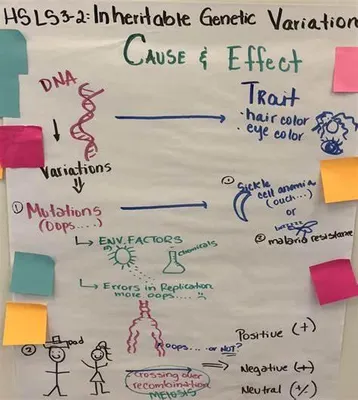 HSLS3-2: Inheritable Genetic Variation
CAUSE & EFFECT
DNA
TRAIT
• hair color
• eye color
Variations
① Mutations
(Oops....)
① Sickle
cell anemia
(ouch...)
or
② malaria resistance
↳ ENV. FACTORS
chemicals
↳ Errors in Replication
more oops....
oops.... or NOT?
②
Crossing over
recombination
MEIOSIS
Positive (+)
Negative (+)
Neutral (+/-)